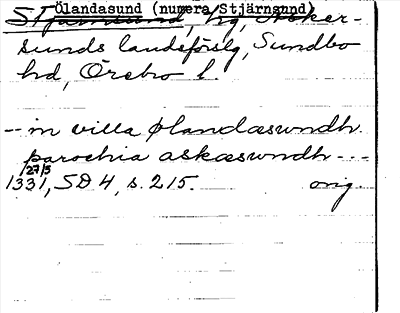 Ölandasund (numera Stjärnsund)
Stjärnsund, hg, Asker-
sunds landsförslg, Sundbo
hd, Örebro l.
-- in villa ølandasundh
parochia askasundh ---
27/5
1331, SD 4, s. 215. orig.